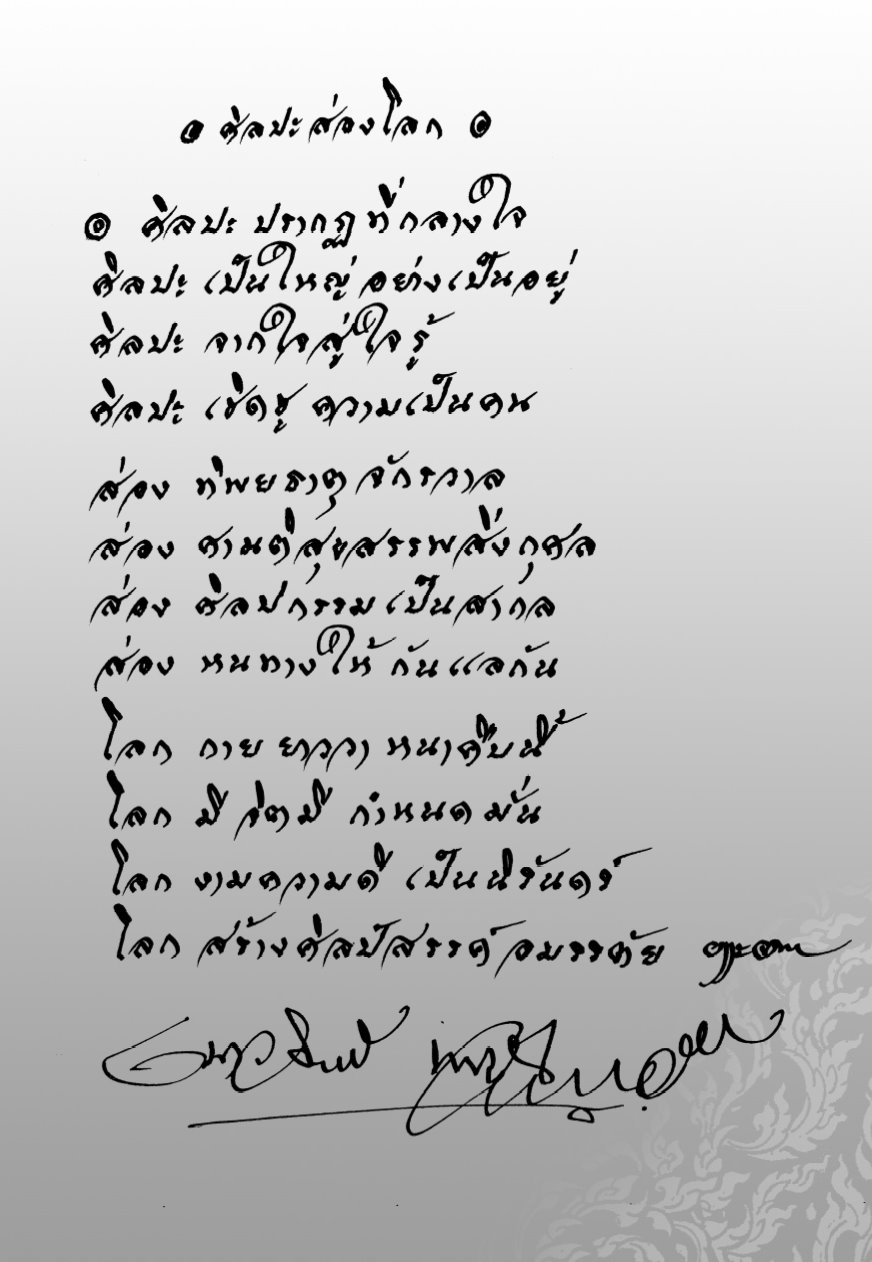 ๏ ศิลปะส่องโลก ๏
๏ ศิลปะ ปรากฏ ที่กลางใจ
ศิลปะ เป็นใหญ่ อย่างเป็นอยู่
ศิลปะ จากใจสู่ใจรู้
ศิลปะ เชิดชู ความเป็นคน
ส่อง ทิพยธาตุ จักรวาล
ส่อง ศานติสุขสรรพสิ่งกุศล
ส่อง ศิลปกรรมเป็นสากล
ส่อง หนทางให้ กันแลกัน
โลก กาย ยาววา หนาคืบนี้
โลก มี จิตมี กำหนดมั่น
โลก งามความดี เป็นนิรันดร์
โลก สร้างศิลป์สรรค์อมรรตัย
เนาวรัตน์ พงษ์ไพบูลย์